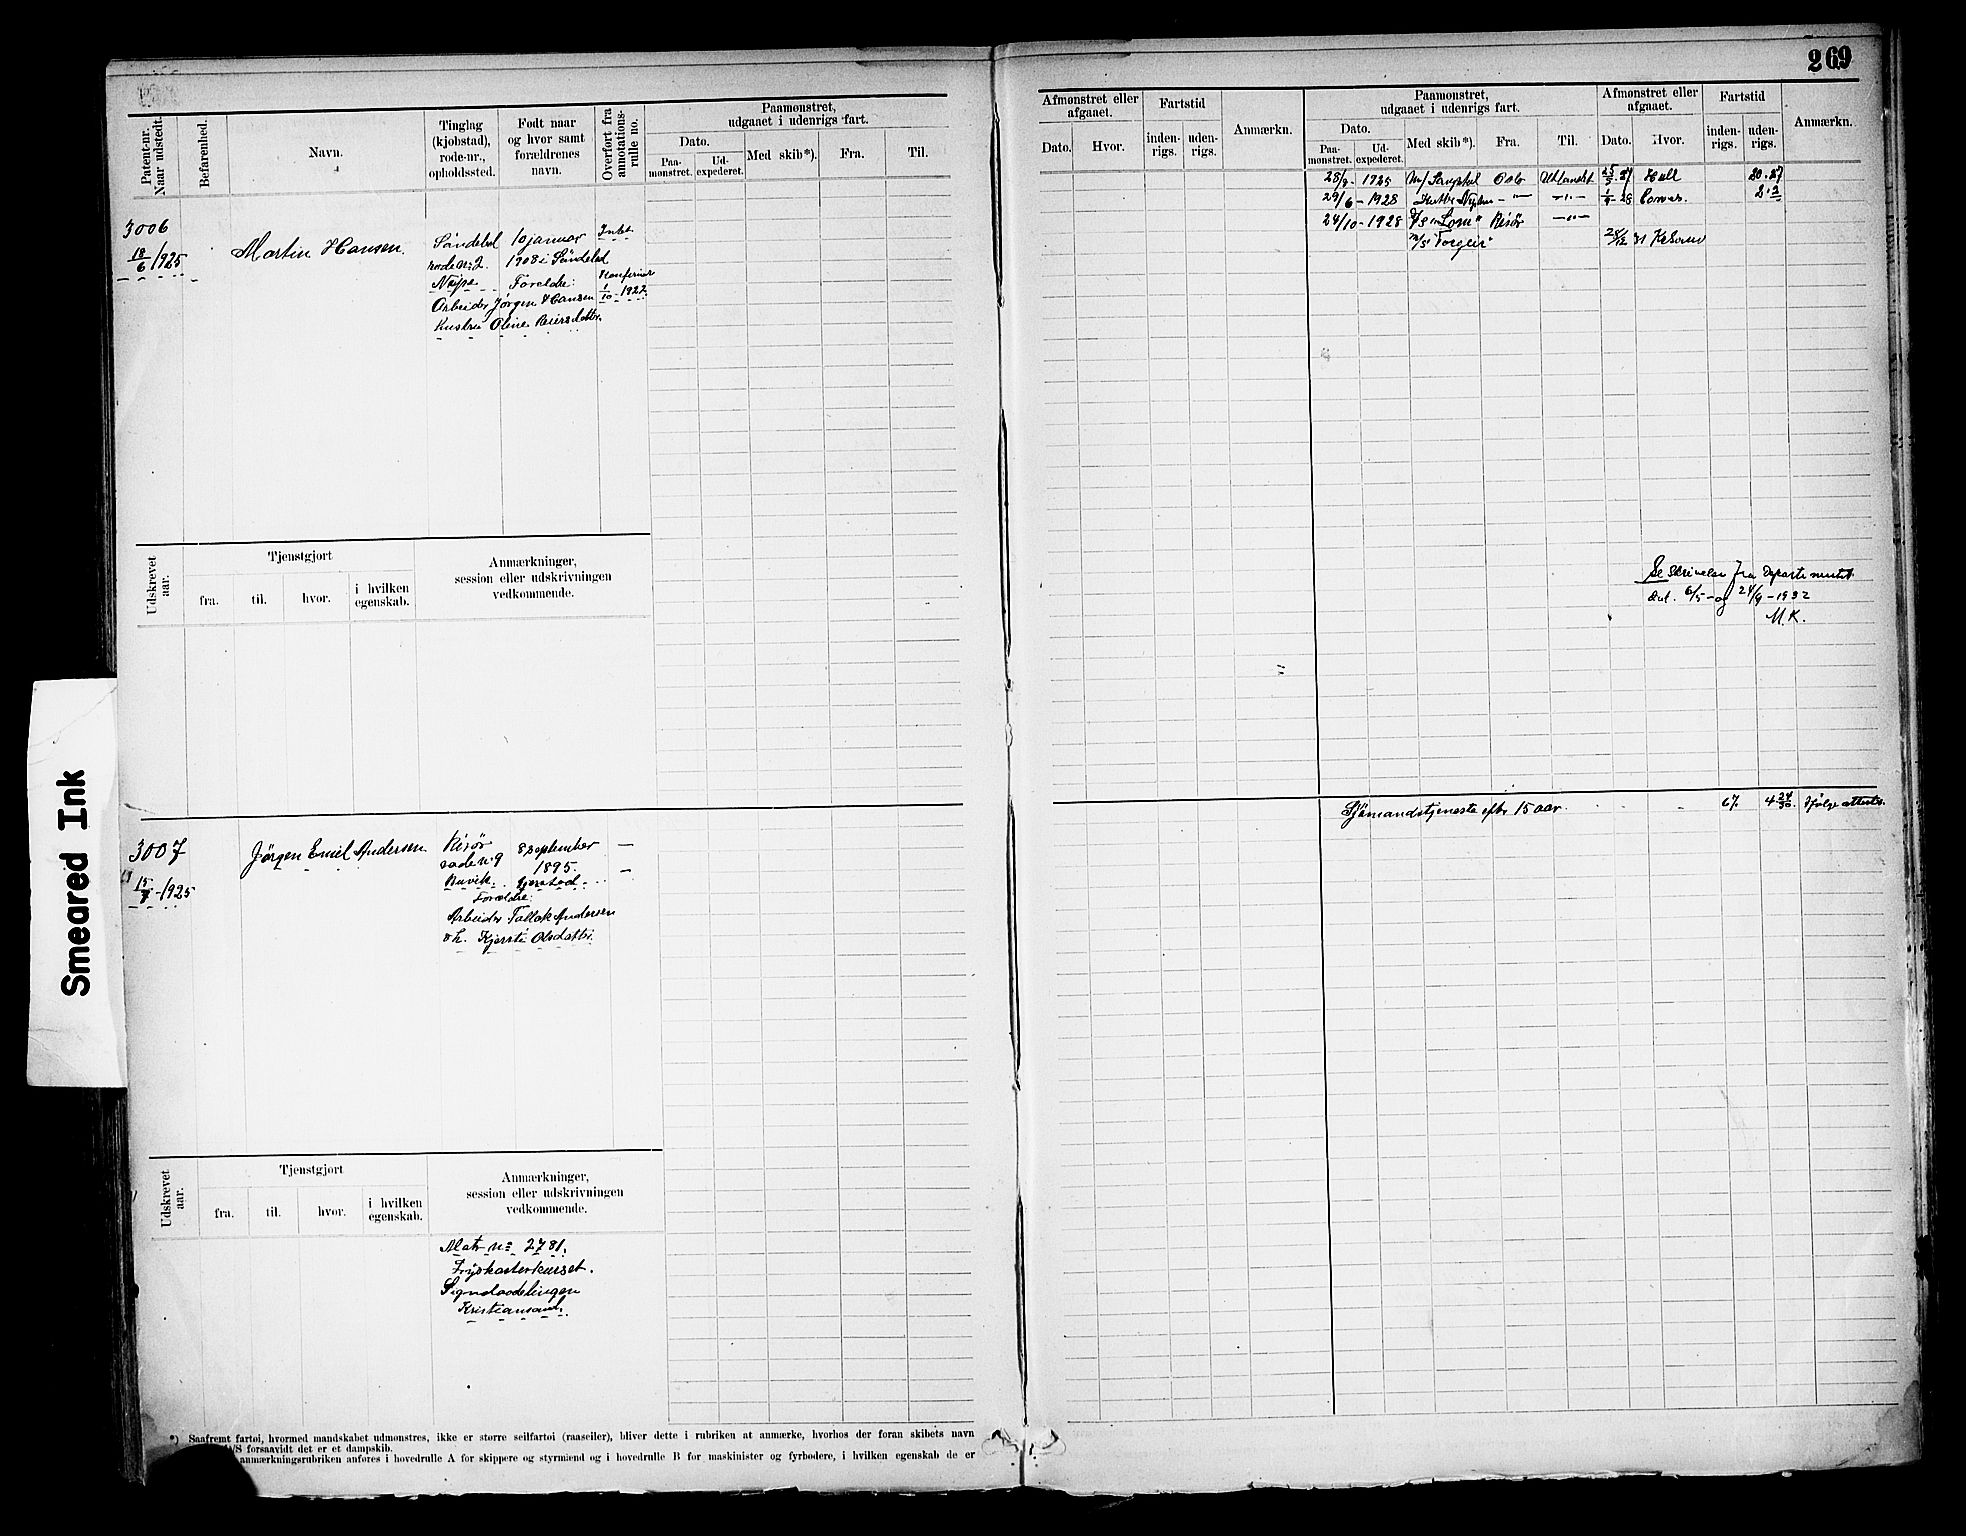 269
Patent-nr.
Naar udstedt.
Befarenhed.
Navn.
Tinglag
(kjøbstad),
rode-nr.,
opholdssted.
Født naar
og hvor samt
forældrenes
navn.
Overført fra
annotations-
rulle no.
Paamønstret,
udgaaet i udenrigs fart.
Dato.
Paa-
mønstret.
Ud-
expederet.
Med skib*).
Fra.
Til.
Afmønstret eller
afgaaet.
Dato.
Hvor.
Fartstid
inden-
rigs.
uden-
rigs.
Anmærkn.
Paamønstret,
udgaaet i udenrigs fart.
Dato.
Paa-
mønstret.
Ud-
expederet.
Med skib*).
Fra.
Til.
Afmønstret eller
afgaaet.
Dato.
Hvor.
Fartstid
inden-
rigs.
uden-
rigs.
Anmærkn.
3006
18/6 1925
Martin Hansen.
Søndeled
rode nr 2
Arbeider Jørgen Hansen
Hustru Oline Reiersdatter.
10 januar
1908 i Søndeled
Forældre:
Intet
1/10 1922
28/9 - 1925 Oslo Utlandet 25/5 27 Hull 20.27
29/6 - 1928 - " - - " - 1/9 - 28 2.2
24/10 - 1928 D/S "Lom" Risør - " -
M/S "Torgeir"
Se skrivelse fra Departementet
dat. 6/5 - og 24/9 - 1932
M.K.
Udskrevet
aar.
Tjenstgjort
fra.
til.
hvor.
i hvilken
egenskab.
Anmærkninger,
session eller udskrivningen
vedkommende.
3007
15/7 - 1925
Jørgen Emil Andersen
Risør
rode nr 9
Buvik.
8 september
1895.
Gjerstad
Forældre:
Arbeider Tallak Andersen
o h. Kjersti Olsdatter.
Sjømandstjeneste efter 15 aar. 67. 4 24/30. Ifølge attester.
Udskrevet
aar.
Tjenstgjort
fra.
til.
hvor.
i hvilken
egenskab.
Anmærkninger,
session eller udskrivningen
vedkommende.
Matr nr 2781.
Signalavdelingen
Kristiansand.
*) Saafremt fartøi, hvormed mandskabet udmønstres, ikke er større seilfartøi (raaseiler), bliver dette i rubriken at anmærke, hvorhos der foran skibets navn
D/S forsaavidt det er et dampskib.
anmærkningsrubriken anføres i hovedrulle A for skippere og styrmænd og i hovedrulle B for maskinister og fyrbødere, i hvilken egenskab de er
Smeared Ink